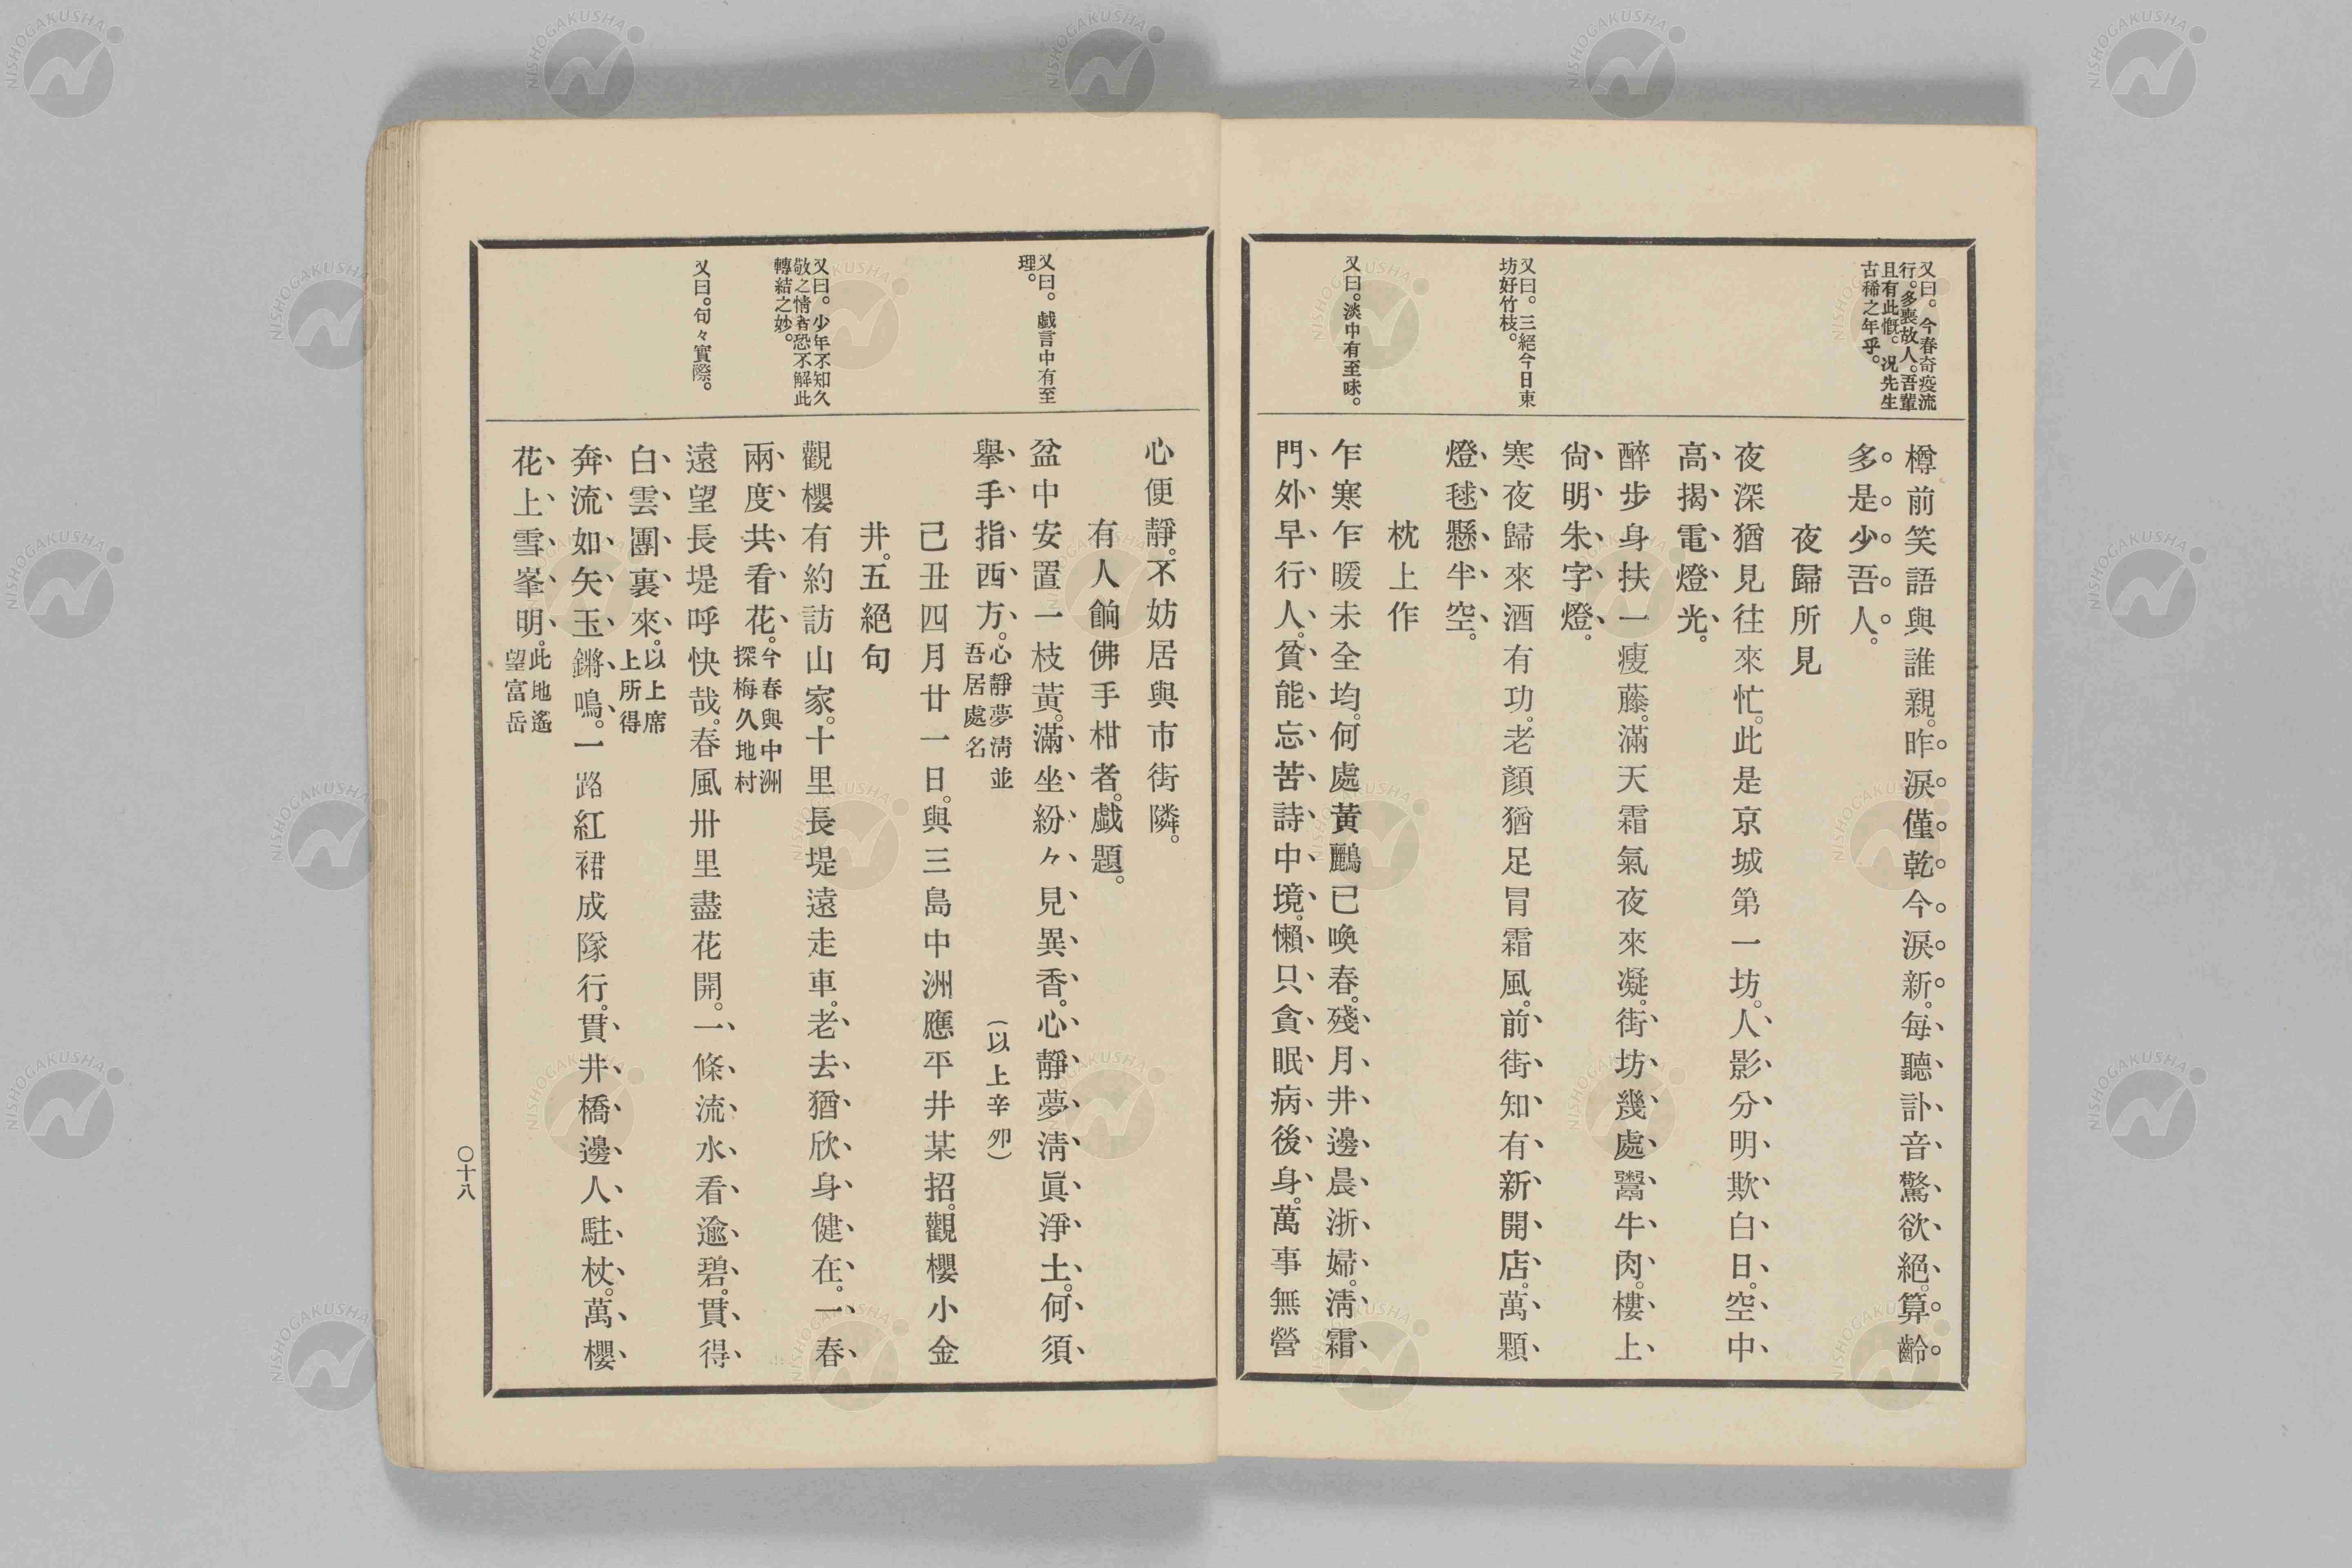 又曰。今春奇疫流
行。多喪故人。吾輩
且有此慨。況先生
古稀之年乎。
又曰。三絕今日東
坊好竹枝。
又曰。淡中有至味。
樽前笑語與誰親。昨淚僅乾今淚新。每聽訃音驚欲絕。算齡
多是少吾人。
夜歸所見
夜深猶見往來忙。此是京城第一坊。人影分明欺白日。空中
高揭電燈光。
醉步身扶一瘦藤。滿天霜氣夜來凝。街坊幾處鬻牛肉。樓上
尙明朱字燈。
寒夜歸來酒有功。老顏猶足冒霜風。前街知有新開店。萬顆
燈毬懸半空。
枕上作
乍寒乍暖未全均。何處黃鸝已喚春。殘月井邊晨浙婦。淸霜
門外早行人。貧能忘苦詩中境。懶只貪眠病後身。萬事無營
又曰。戯言中有至
理。
又曰。少年不知久
敬之情者恐不解此
轉結之妙。
又曰。句々實際。
心便靜。不妨居與市街隣。
有人餉佛手柑者。戯題。
盆中安置一枝黃。滿坐紛々見異香。心靜夢淸眞淨土。何須
擧手指西方。心靜夢淸並
吾居處名
(以上辛夘)
己丑四月廿一日。與三島中洲應平井某招。觀櫻小金
井。五絕句
觀櫻有約訪山家。十里長堤遠走車。老去猶欣身健在。一春
兩度共看花。今春與中洲
探梅久地村
遠望長堤呼快哉。春風卅里盡花開。一條流水看逾碧。貫得
白雲團裏來。以上席
上所得
奔流如矢玉鏘鳴。一路紅裙成隊行。貫井橋邊人駐杖。萬櫻
花上雪峯明。此地遙
望富岳
〇十八
NISHOGAKUSHA